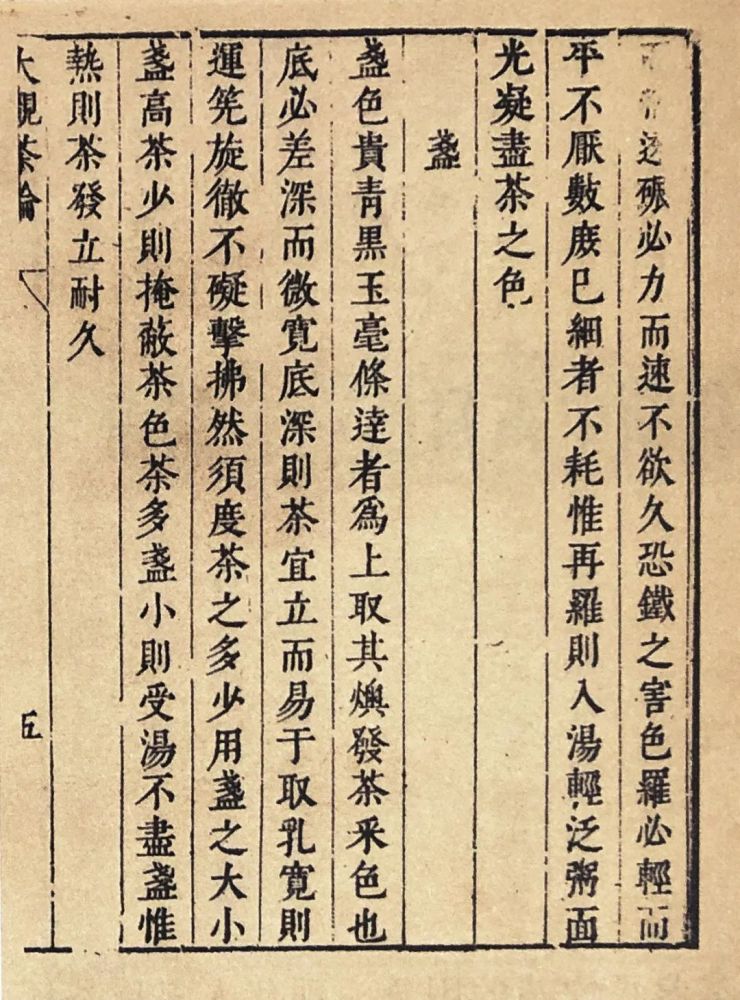 而常透碾必力而速不欲久恐鐵之害色羅必輕而
平不厭數庶已細者不耗惟再羅則入湯輕泛粥面
光凝盡茶之色
盞
盞色貴青黑玉毫條達者爲上取其燠發茶采色也
底必差深而微寬底深則茶宜立而易于取乳寬則
運筅旋徹不礙擊拂然須度茶之多少用盞之大小
盞高茶少則掩蔽茶色茶多盞小則受湯不盡盞惟
熱則茶發立耐久
大觀茶論
五